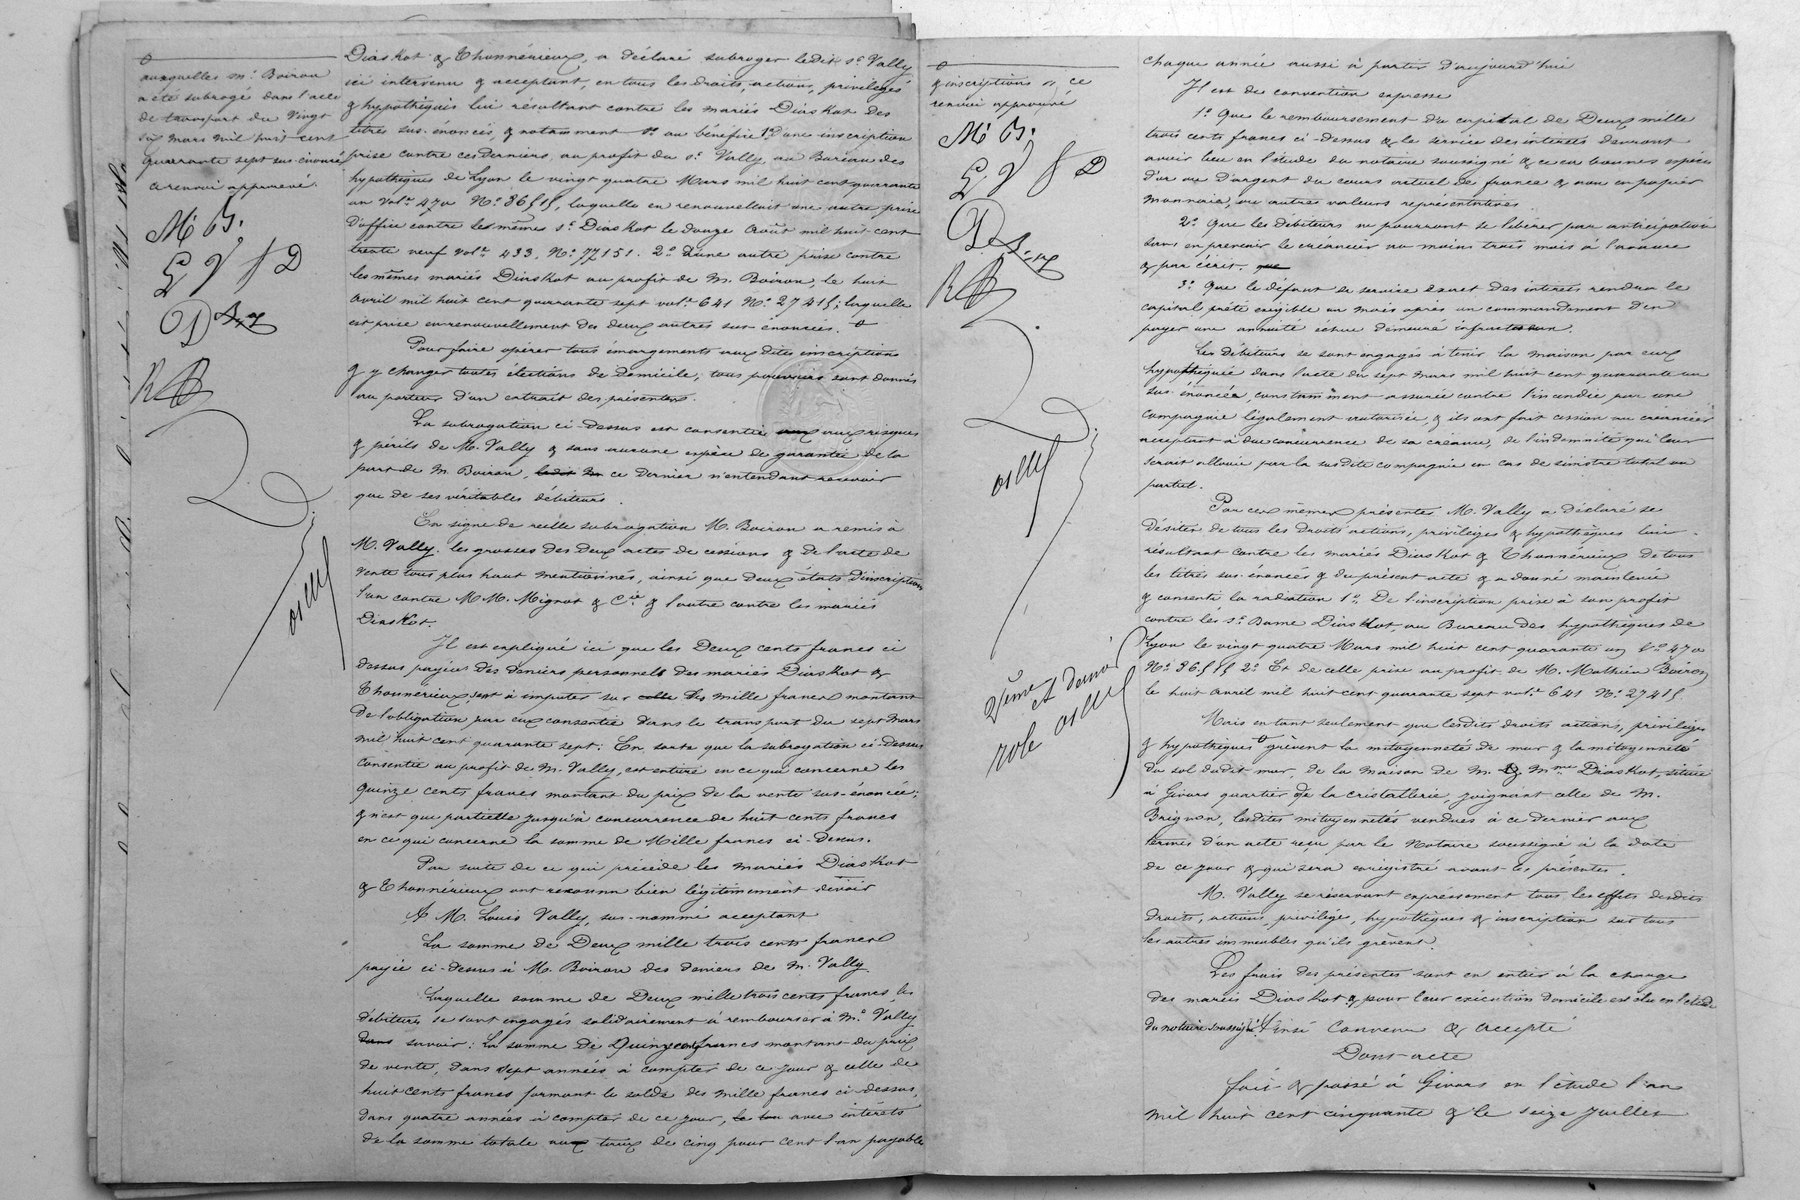 auxquelles m.r Boiron
a été subrogé dans l'acte
de transport du vingt
six mars mil huit cent
quarante sept sus-énoncé
ce renvoi approuvé.
M. B.
L V f D
Diaskot & Thonnérieux, a déclaré subroger ledit s.r Vally
ici intervenu & acceptant, en tous les droits, actions, privilèges
& hypothèques lui résultant contre les mariés Diaskot des
titres sus-énoncés, & notamment au bénéfice 1.o d'une inscription
prise contre ces derniers, au profit du s.r Vally, au Bureau des
hypothèques de Lyon le vingt quatre Mars mil huit cent quarante
un vol.e 470 N.o 86515, laquelle en renouvellait une autre prise
d'office contre les mêmes s.r Diaskot le douze Août mil huit cent
trente neuf vol.e 433, N.o 77151. 2.o d'une autre prise contre
les mêmes mariés Diaskot au profit de M. Boiron, le huit
avril mil huit cent quarante sept vol.e 641 N.o 27415; laquelle
est prise en renouvellement des deux autres sus-énoncées.
Pour faire opérer tous émargements aux dites inscriptions
& y changer toutes élections de domicile, tous pouvoirs sont donnés
au porteur d'un extrait des présentes.
La subrogation ci-dessus est consentie aux risques
& périls de M. Vally & sans aucune espèce de garantie de la
part de M. Boiron, ce dernier n'entendant recevoir
que de ses véritables débiteurs.
En signe de réelle subrogation M. Boiron a remis à
M. Vally les grosses des deux actes de cessions & de l'acte de
vente tous plus haut mentionnés, ainsi que deux états d'inscription
l'un contre M.M. Mignot & C.ie & l'autre contre les mariés
Diaskot.
Il est expliqué ici que les Deux cents francs ci
dessus payés des deniers personnels des mariés Diaskot &
Thonnérieux, sont à imputer sur les mille francs montant
de l'obligation par eux consentie dans le transport du sept mars
mil huit cent quarante sept; En sorte que la subrogation ci-dessus
consentie au profit de M. Vally, est entière en ce qui concerne les
quinze cents francs montant du prix de la vente sus-énoncée;
& n'est que partielle jusqu'à concurrence de huit cents francs
en ce qui concerne la somme de Mille francs ci-Dessus.
Par suite de ce qui précède les mariés Diaskot
& Thonnérieux ont reconnu bien légitimement devoir
A M. Louis Vally, sus-nommé acceptant
La somme de Deux mille trois cents francs
payée ci-dessus à M. Boiron des deniers de M. Vally
Laquelle somme de Deux mille trois cents francs, les
débiteurs se sont engagés solidairement à rembourser à M.r Vally
savoir: la somme de Quinze cent francs montant du prix
de vente, dans sept années à compter de ce jour & celle de
huit cents francs formant le solde des mille francs ci-dessus,
dans quatre années à compter de ce jour, avec intérêts
de la somme totale aux taux de cinq pour cent l'an payable
& inscriptions ce
renvoi approuvé
M. B.
L V f D
2ème et dernier
rôle
chaque année aussi à partir d'aujourd'hui
Il est de convention expresse
1.o Que le remboursement du capital de Deux mille
trois cents francs ci-dessus & le service des intérêts devront
avoir lieu en l'étude du notaire soussigné & ce en bonnes espèces
d'or ou d'argent du cours actuel de france & non en papier
monnaie, ou autres valeurs représentatives.
2.o Que les débiteurs ne pourront se libérer par anticipation
sans en prévenir le créancier au moins trois mois à l'avance
& par écrit.
3.o Que le défaut de service exact des intérêts rendra le
capital prêté exigible un mois après un commandement d'en
payer une annuité échue demeuré infructueux.
Les débiteurs se sont engagés à tenir la maison par eux
hypothéquée dans l'acte du sept mars mil huit cent quarante un
sus-énoncé, constamment assurée contre l'incendie par une
compagnie légalement autorisée, & ils ont fait cession au créancier
acceptant à due concurrence de sa créance, de l'indemnité qui leur
serait allouée par la susdite compagnie en cas de sinistre total ou
partiel.
Par ces mêmes présentes M. Vally a déclaré se
désister de tous les droits, actions, privilèges & hypothèques lui
résultant contre les mariés Diaskot & Thonnérieux de tous
les titres sus-énoncés & du présent acte & a donné mainlevée
& consenti la radiation 1.o De l'inscription prise à son profit
contre les s.r Dame Diaskot, au Bureau des hypothèques de
Lyon le vingt quatre Mars mil huit cent quarante un v.o 470
N.o 86515 2.o Et de celle prise au profit de M. Mathieu Boiron
le huit avril mil huit cent quarante sept vol.e 641 N.o 27415.
Mais en tant seulement que lesdits droits actions, privilèges
& hypothèques grèvent la mitoyenneté de mur & la mitoyenneté
du sol dudit mur, de la maison de M. & M.me Diaskot, située
à Givors quartier de la cristallerie, joignant celle de M.
Brignon, lesdites mitoyennetés vendues à ce dernier aux
termes d'un acte reçu par le Notaire soussigné à la date
de ce jour & qui sera enregistré avant les présentes.
M. Vally se réservant expressément tous les effets desdits
droits, actions, privilège, hypothèques & inscription sur tous
les autres immeubles qu'ils grèvent.
Les frais des présentes sont en entier à la charge
des mariés Diaskot & pour leur exécution domicile est élu en l'étude
du notaire soussigné Ainsi convenu & accepté
Dont acte
fait & passé à Givors en l'étude l'an
mil huit cent cinquante & le seize juillet